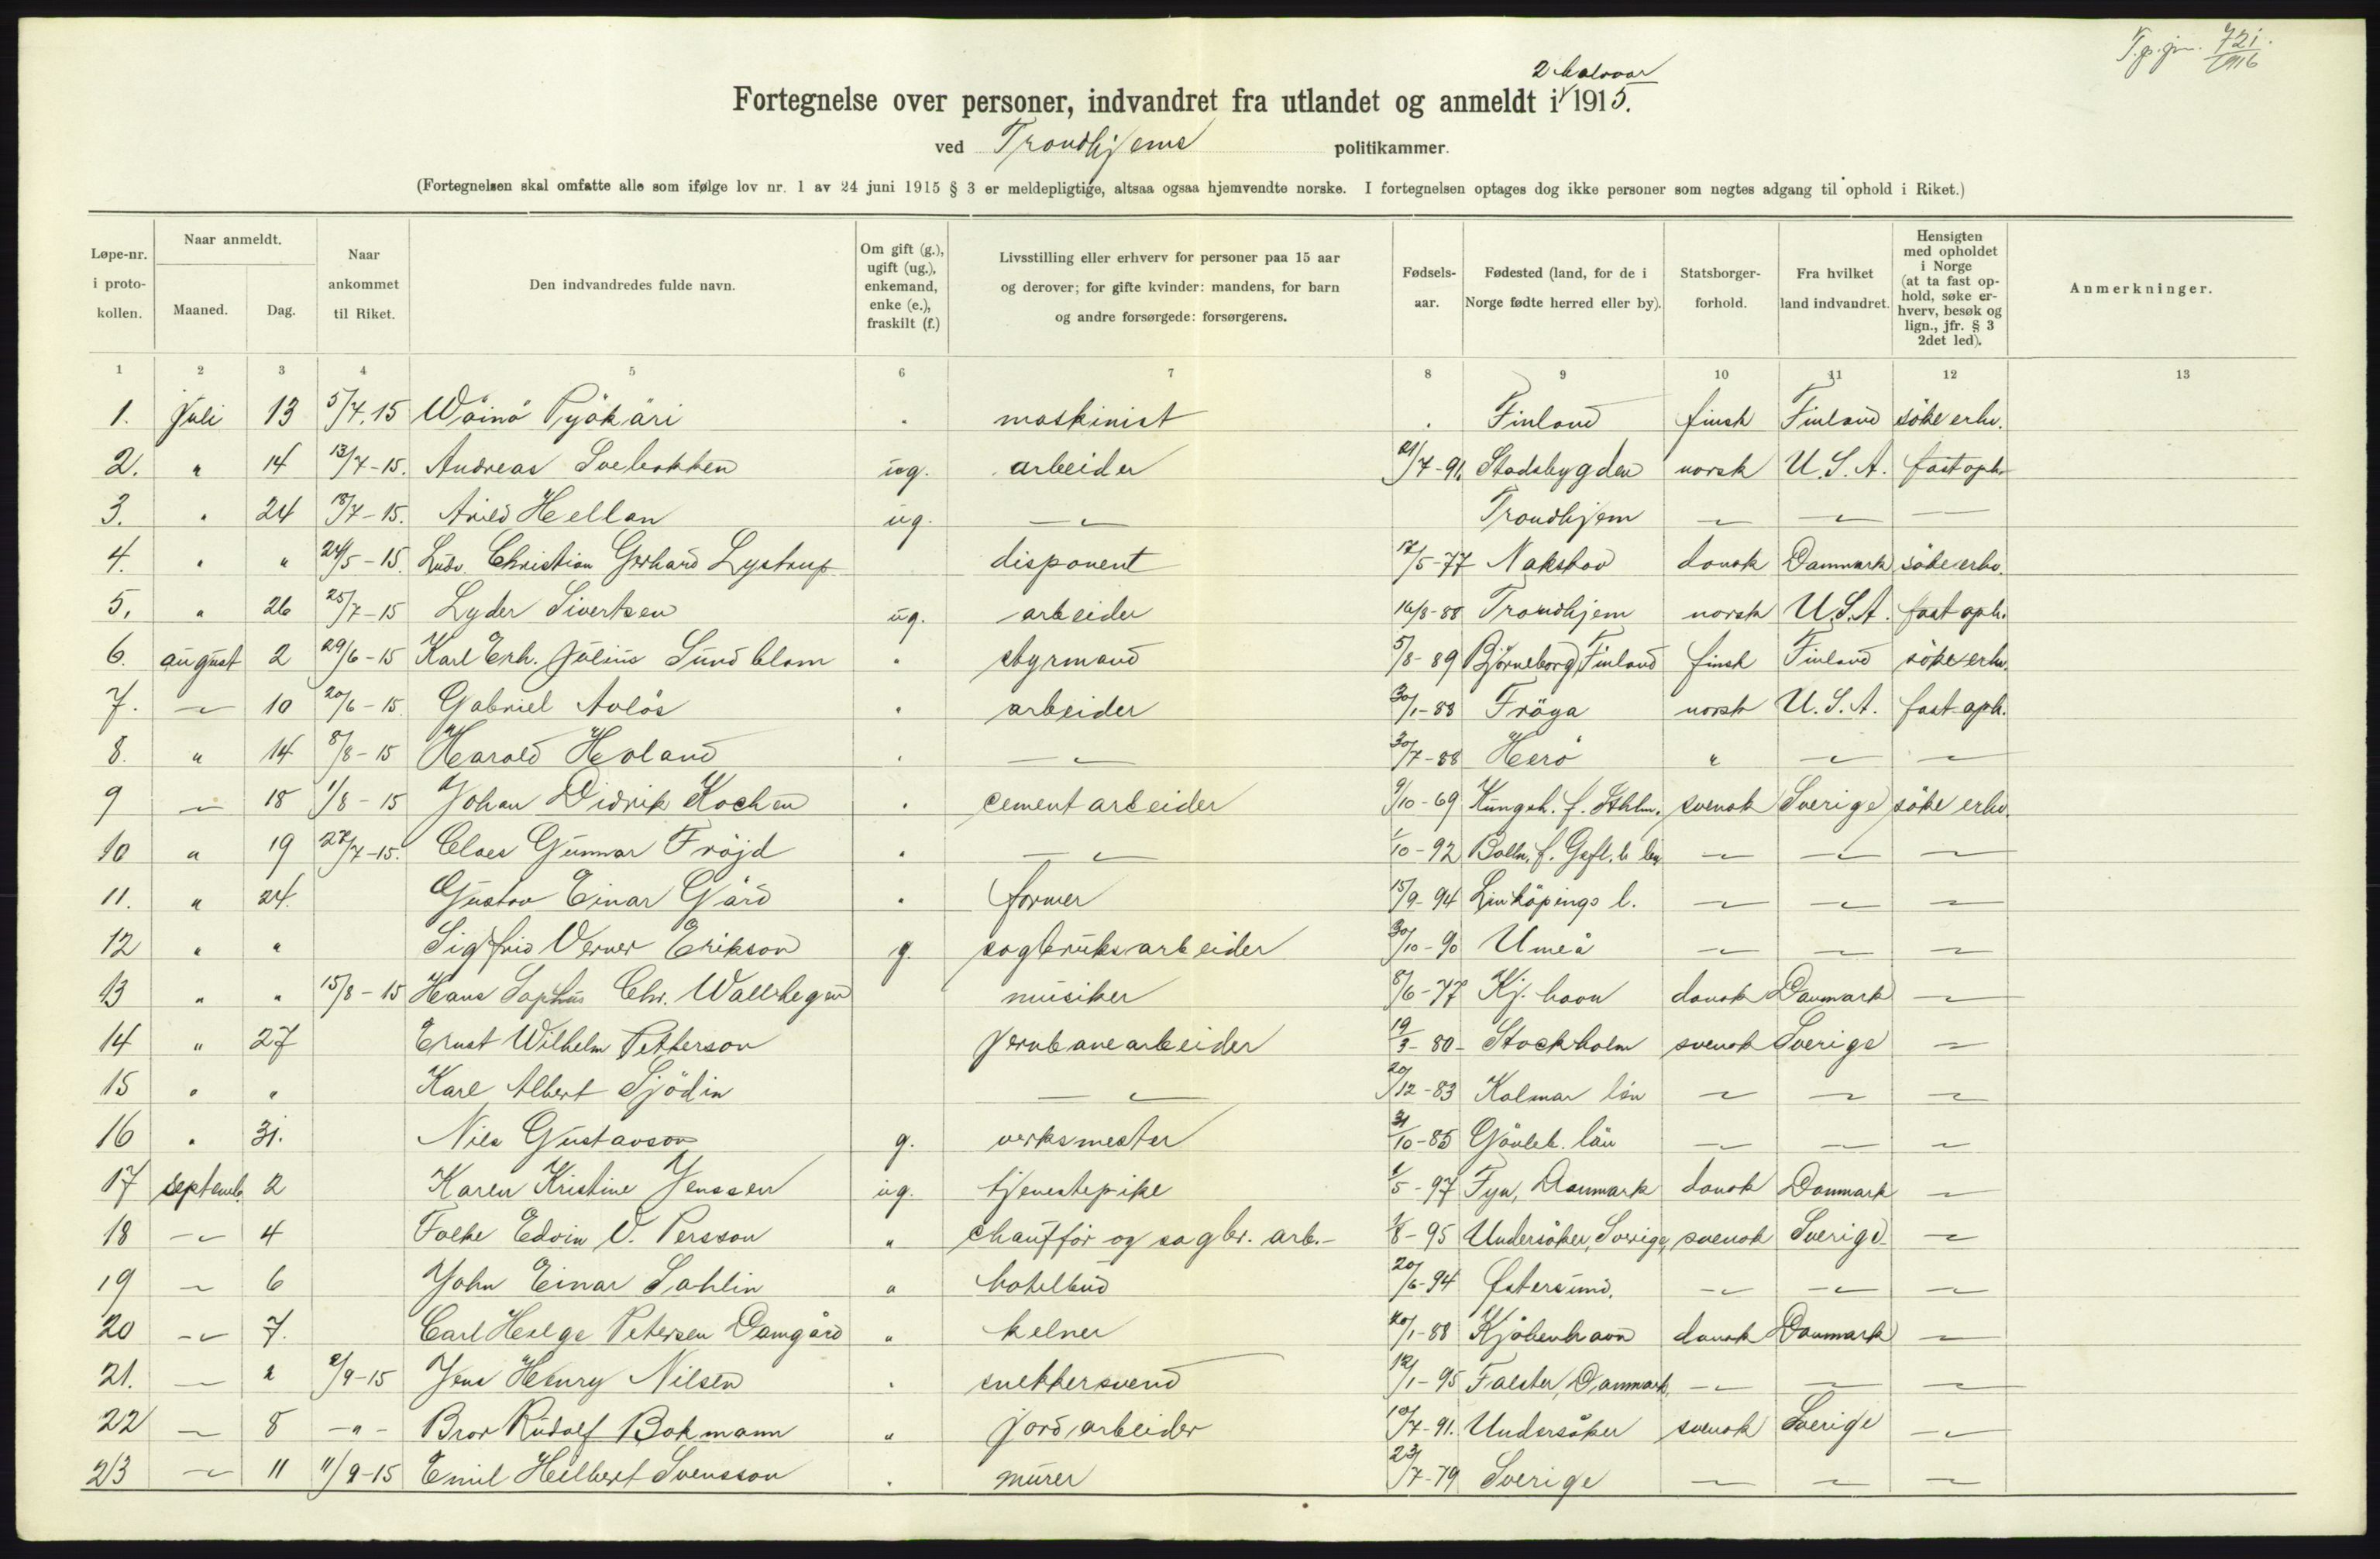 T.p.jn. 721/1916
2 halvaar
Fortegnelse over personer, indvandret fra utlandet og anmeldt i 1915.
ved Trondhjems politikammer.
(Fortegnelsen skal omfatte alle som ifølge lov nr. 1 av 24 juni 1915 § 3 er meldepligtige, altsaa ogsaa hjemvendte norske. I fortegnelsen optages dog ikke personer som negtes adgang til ophold i Riket.)
Løpe-nr. i proto-kollen. Naar anmeldt. Maaned. Dag. Naar ankommet til Riket. Den indvandredes fulde navn. Om gift (g.), ugift (ug.), enkemand, enke (e.), fraskilt (f.) Livsstilling eller erhverv for personer paa 15 aar og derover; for gifte kvinder: mandens, for barn og andre forsørgede: forsørgerens. Fødsels-aar. Fødested (land, for de i Norge fødte herred eller by). Statsborger-forhold. Fra hvilket land indvandret. Hensigten med opholdet i Norge (at ta fast op-hold, søke er-hverv, besøk og lign., jfr. § 3 2det led). Anmerkninger.
1 2 3 4 5 6 7 8 9 10 11 12 13
1. Juli 13 5/7.15 Wäinö Pyökäri . maskinist . Finland finsk Finland söke erhv.
2. " 14 13/7-15. Andreas ug. arbeider 21/7-91. Stadsbygden norsk U.S.A. fast oph.
3. " 24 13/7-15. Arild Hellan ug. —"— Trondhjem —"— —"— —
4. " " 24/5-15. Ludv. Christian Gerhard Lystrup disponent 17/5-77 Nakskov dansk Danmark söke erhv.
5. " 26 25/7-15 Lyder Sivertsen ug. arbeider 16/8-88 Trondhjem norsk U.S.A. fast oph.
6. august 2 29/6-15 Karl Erh. Julius Sundblom " styrmand 5/8-89 Björneborg, Finland finsk Finland söke erhv.
7. —"— 10 20/6-15 Gabriel Avlös " arbeider 30/1-88 Fröya norsk U.S.A. fast oph.
8. " 14 8/8-15 Harald Holand " —"— 30/7-88 Herö " —"— —"—
9 —"— 18 1/8-15 Johan Didrik Kochen " cementarbeider 9/10-69 Kungsh. f. Sthlm. svensk Sverige söke erhv.
10 " 19 27/7-15. Claes Gunnar Fröjd " —"— 1/10-92 Bolln. f. Gefl.b län —"— —"— —"—
11. " 24. Gustav Einar Gård " former 15/9-94 Linköpings l. —"— —"— —"—
12 " " Sigfrid Verner Erikson g. sagbruksarbeider 30/10-90 Umeå —"— —"— —"—
13 " " 15/8-15 Hans Sophus Chr. Wallhegen musiker 8/6-77 Kj.havn dansk Danmark —"—
14 " 27 Ernst Wilhelm Petterson jernbanearbeider 19/3-80- Stockholm svensk Sverige —"—
15 " " Karl Albert Sjödin —"— 20/12-83 Kalmar län —"— —"— —"—
16 " 31. Nils Gustavson g. verksmester 31/10-85 Gävleb. län —"— —"— —"—
17 septemb. 2 Karen Kristine Jenssen ug. tjenestepike 1/5-97 Fyn, Danmark dansk Danmark —"—
18 —"— 4 Folke Edvin V. Persson " chauffør og sagbr. arb.- 1/8-95 Undersåker, Sverige, svensk Sverige —"—
19 —"— 6 John Einar Sahlin " hotelbud 20/6-94 Östersund. —"— —"— —"—
20 —"— 7. Carl Helge Petersen Damgård " kelner 20/1-88 Kjöbenhavn dansk Danmark —"—
21. —"— " 2/9-15 Jens Henry Nilsen " snekkersvend 12/1-95 Falster, Danmark, —"— —"— —"—
22 —"— 8 -"- Bror Rudolf Bokmann " jordarbeider 10/7-91. Undersåker svensk Sverige —"—
23 —"— 11 11/9-15 Emil Hilbert Svensson " murer 23/7-79 Sverige —"— —"— —"—